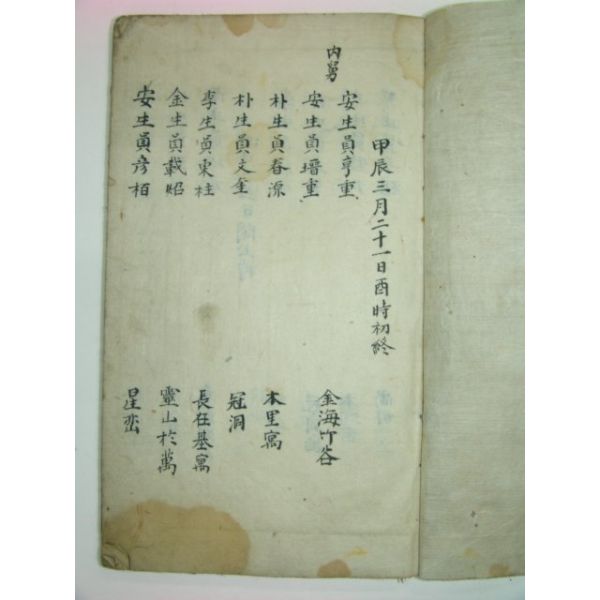 甲辰三月二十一日酉時初終
內舅
安生員亨重
安生員瑨重 金海竹谷
朴生員春源 本里寓
朴生員文奎 冠洞
李生員東柱 長在基寓
金生員載昭 靈山於萬
安生員彦栢 星巒